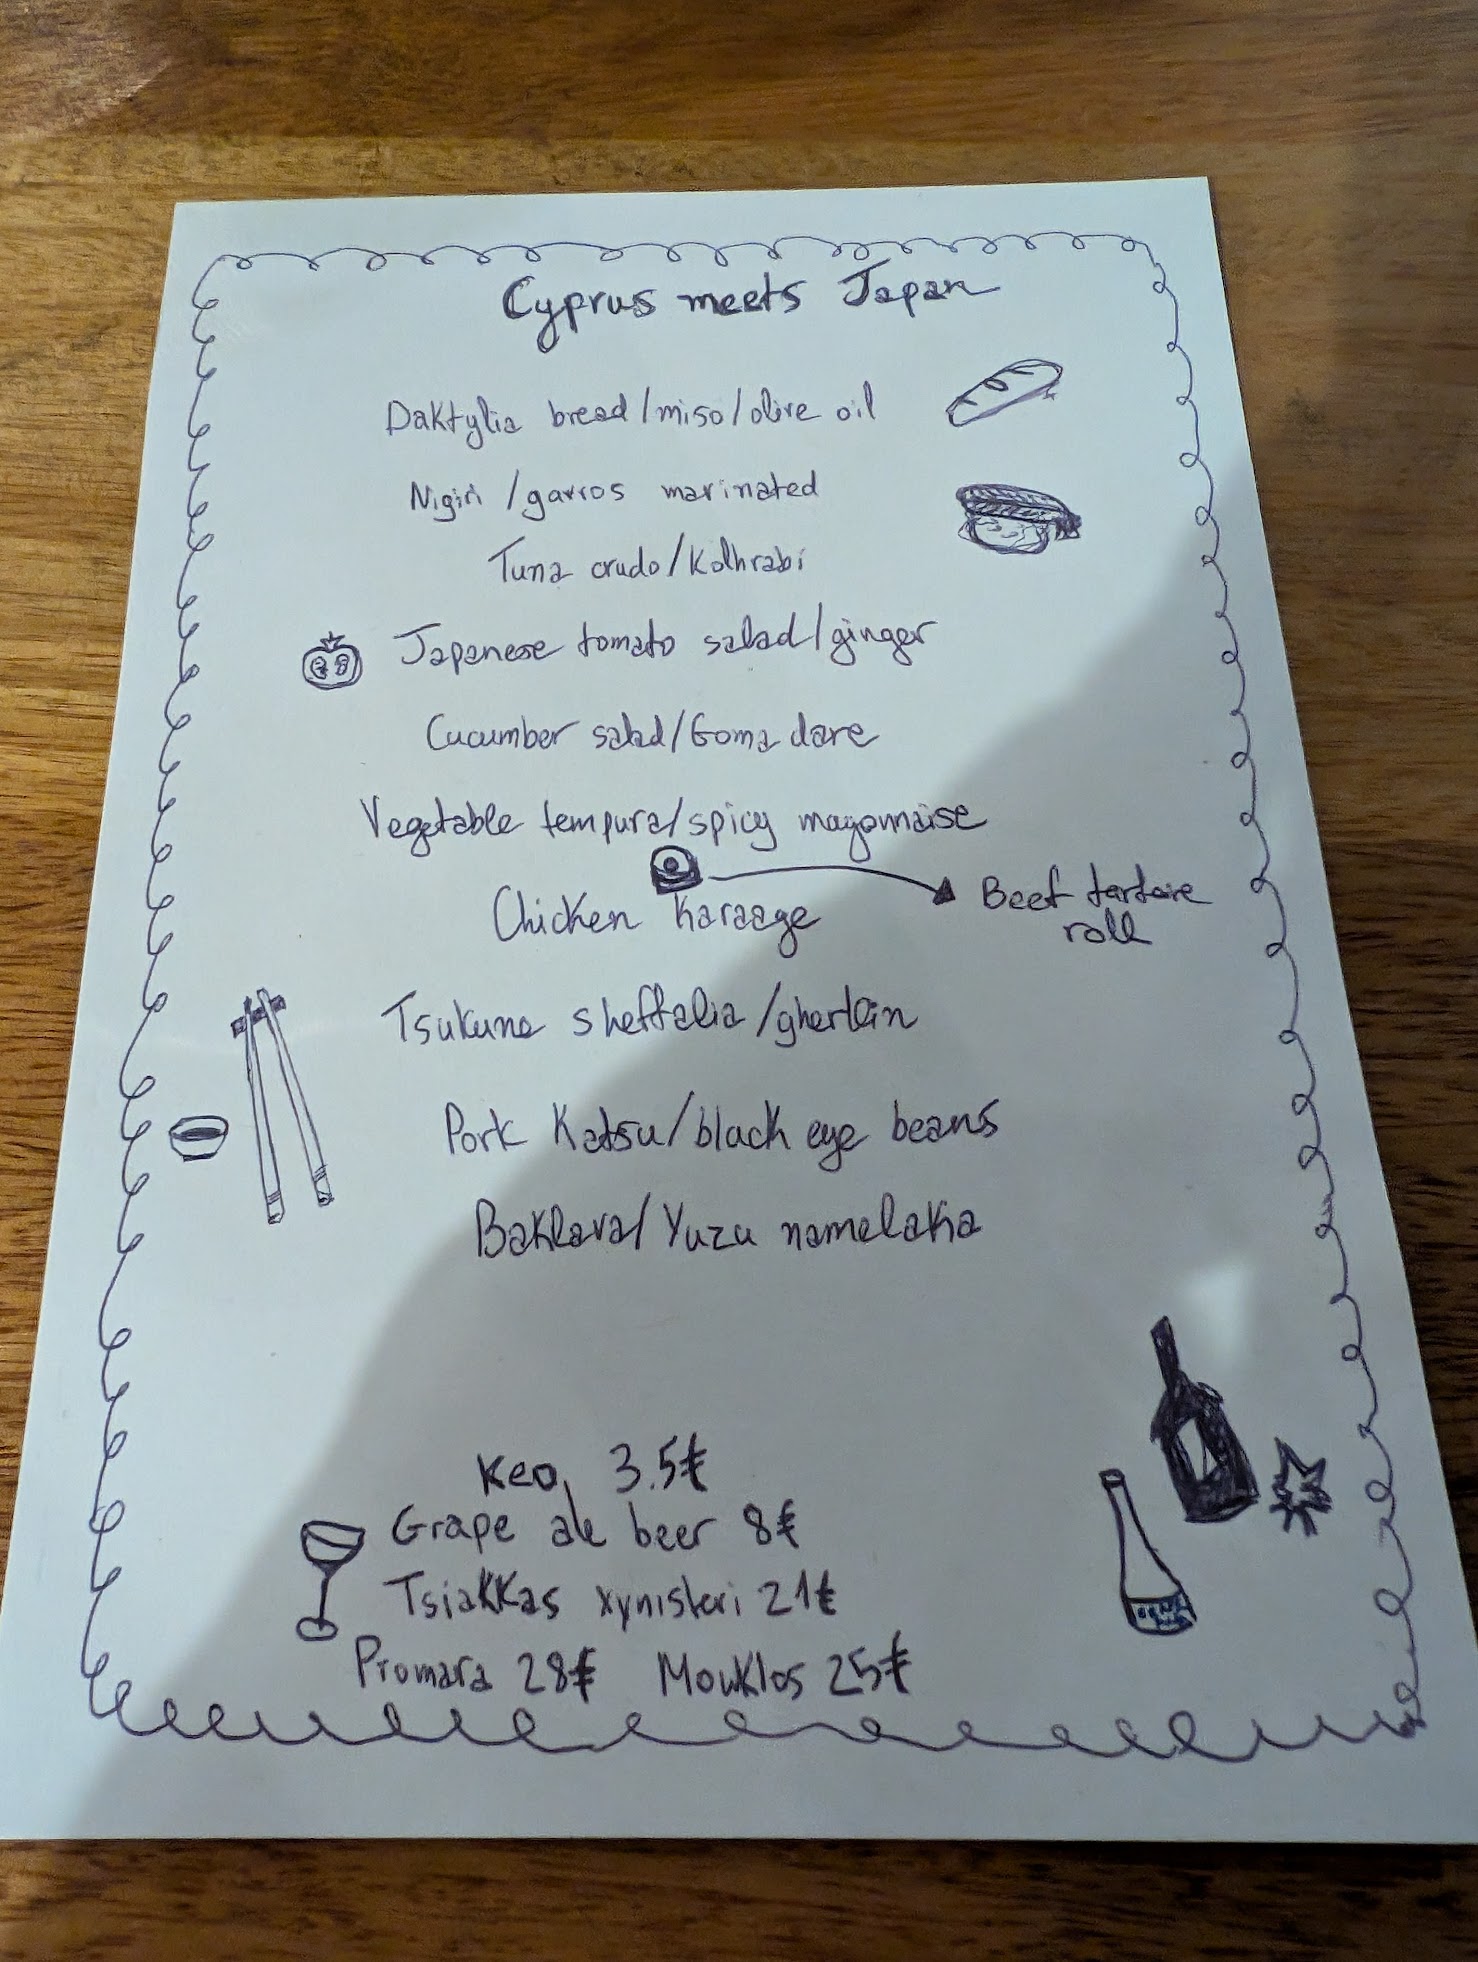 Cyprus meets Japan
Daktylia bread/miso/olive oil
Nigiri /gavros marinated
Tuna crudo/Kolhrabi
Japanese tomato salad/ginger
Cucumber salad/Goma dare
Vegetable tempura/spicy mayonnaise
Beef tartare
roll
Chicken Karaage
Tsukune sheftalia/gherkin
Pork Katsu/black eye beans
Baklava/Yuzu namelaka
Keo 3.5€
Grape ale beer 8€
Tsiakkas xynisteri 21€
Promara 28€ Mouklos 25€